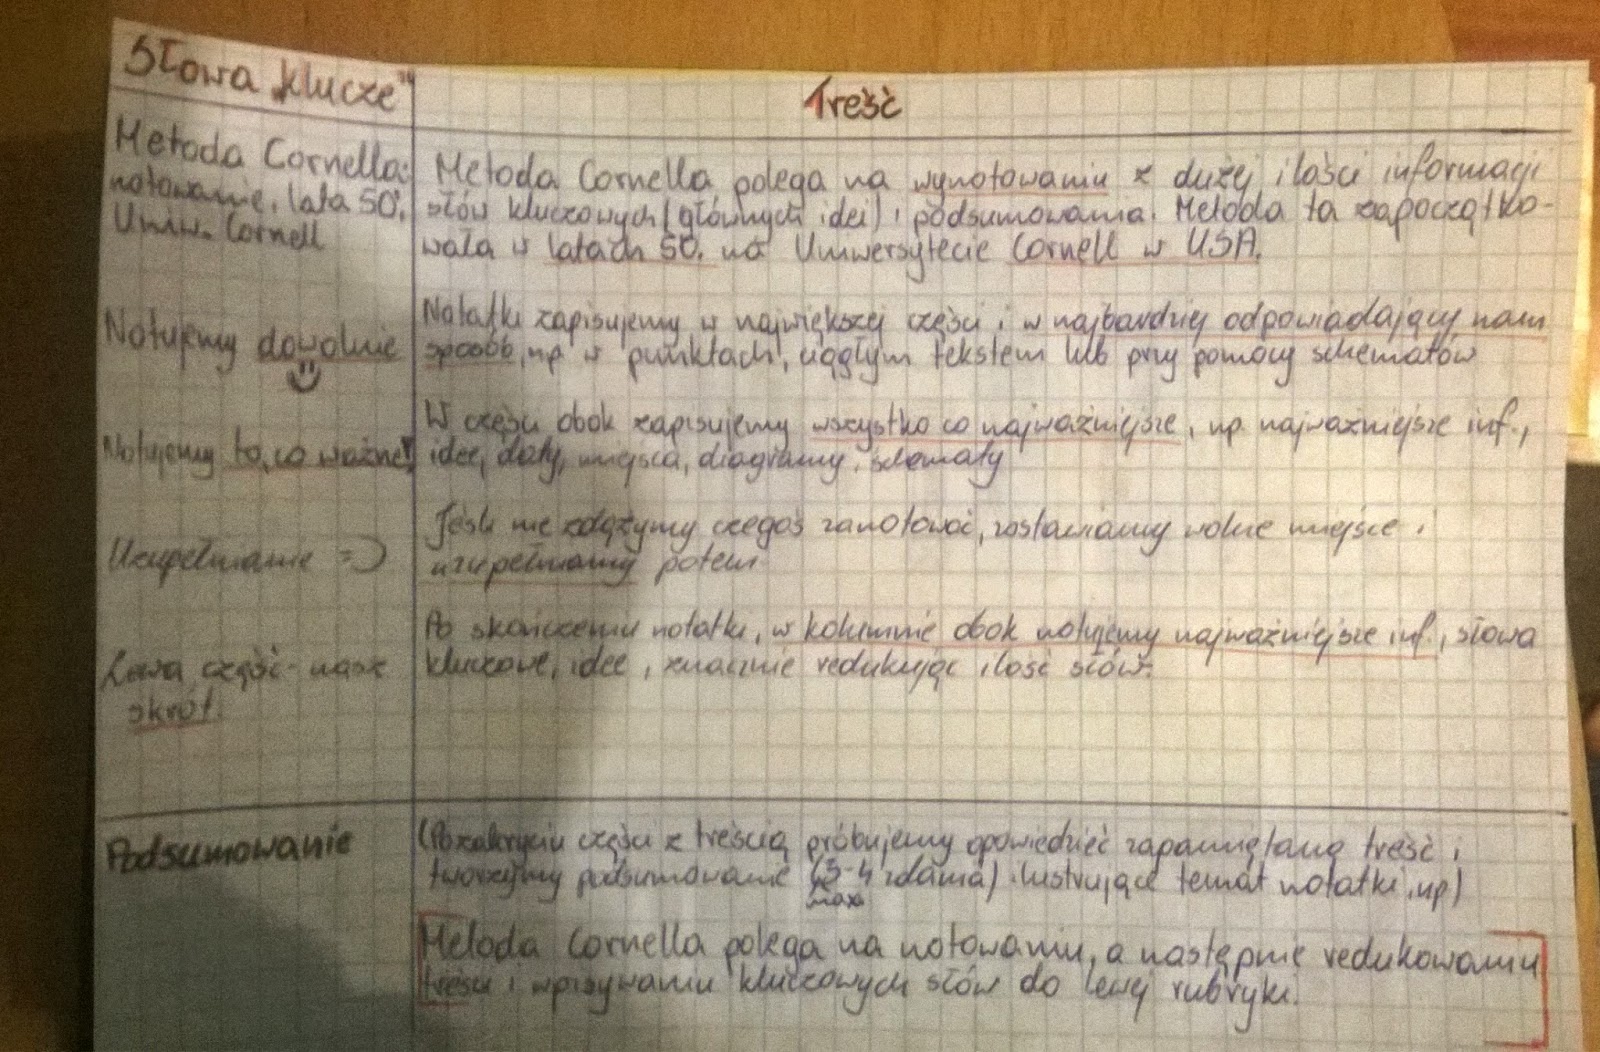 Słowa „klucze"
Treść
Metoda Cornella:
notowanie, lata 50',
Uniw. Cornell
Metoda Cornella polega na wynotowaniu z dużej ilości informacji
słów kluczowych (głównych idei) i podsumowania. Metoda ta zapoczątko-
wała w latach 50. na Uniwersytecie Cornell w USA.
Notujemy dowolnie
Notatki zapisujemy w największej części i w najbardziej odpowiadający nam
sposób, np w punktach, ciągłym tekstem lub przy pomocy schematów
Notujemy to, co ważne!
W części obok zapisujemy wszystko co najważniejsze, np najważniejsze inf.,
idee, daty, miejsca, diagramy, schematy
Uzupełnianie =)
Jeśli nie zdążymy czegoś zanotować, zostawiamy wolne miejsce i
uzupełniamy potem
Lewa część - nasz
skrót.
Po skończeniu notatki, w kolumnie obok notujemy najważniejsze inf., słowa
kluczowe, idee, znacznie redukując ilość słów.
Podsumowanie
(Po zakryciu części z treścią próbujemy opowiedzieć zapamiętaną treść i
tworzymy podsumowanie (3-4 zdania) ilustrujące temat notatki, np)
max
Metoda Cornella polega na notowaniu, a następnie redukowaniu
treści i wpisywaniu kluczowych słów do lewej rubryki.